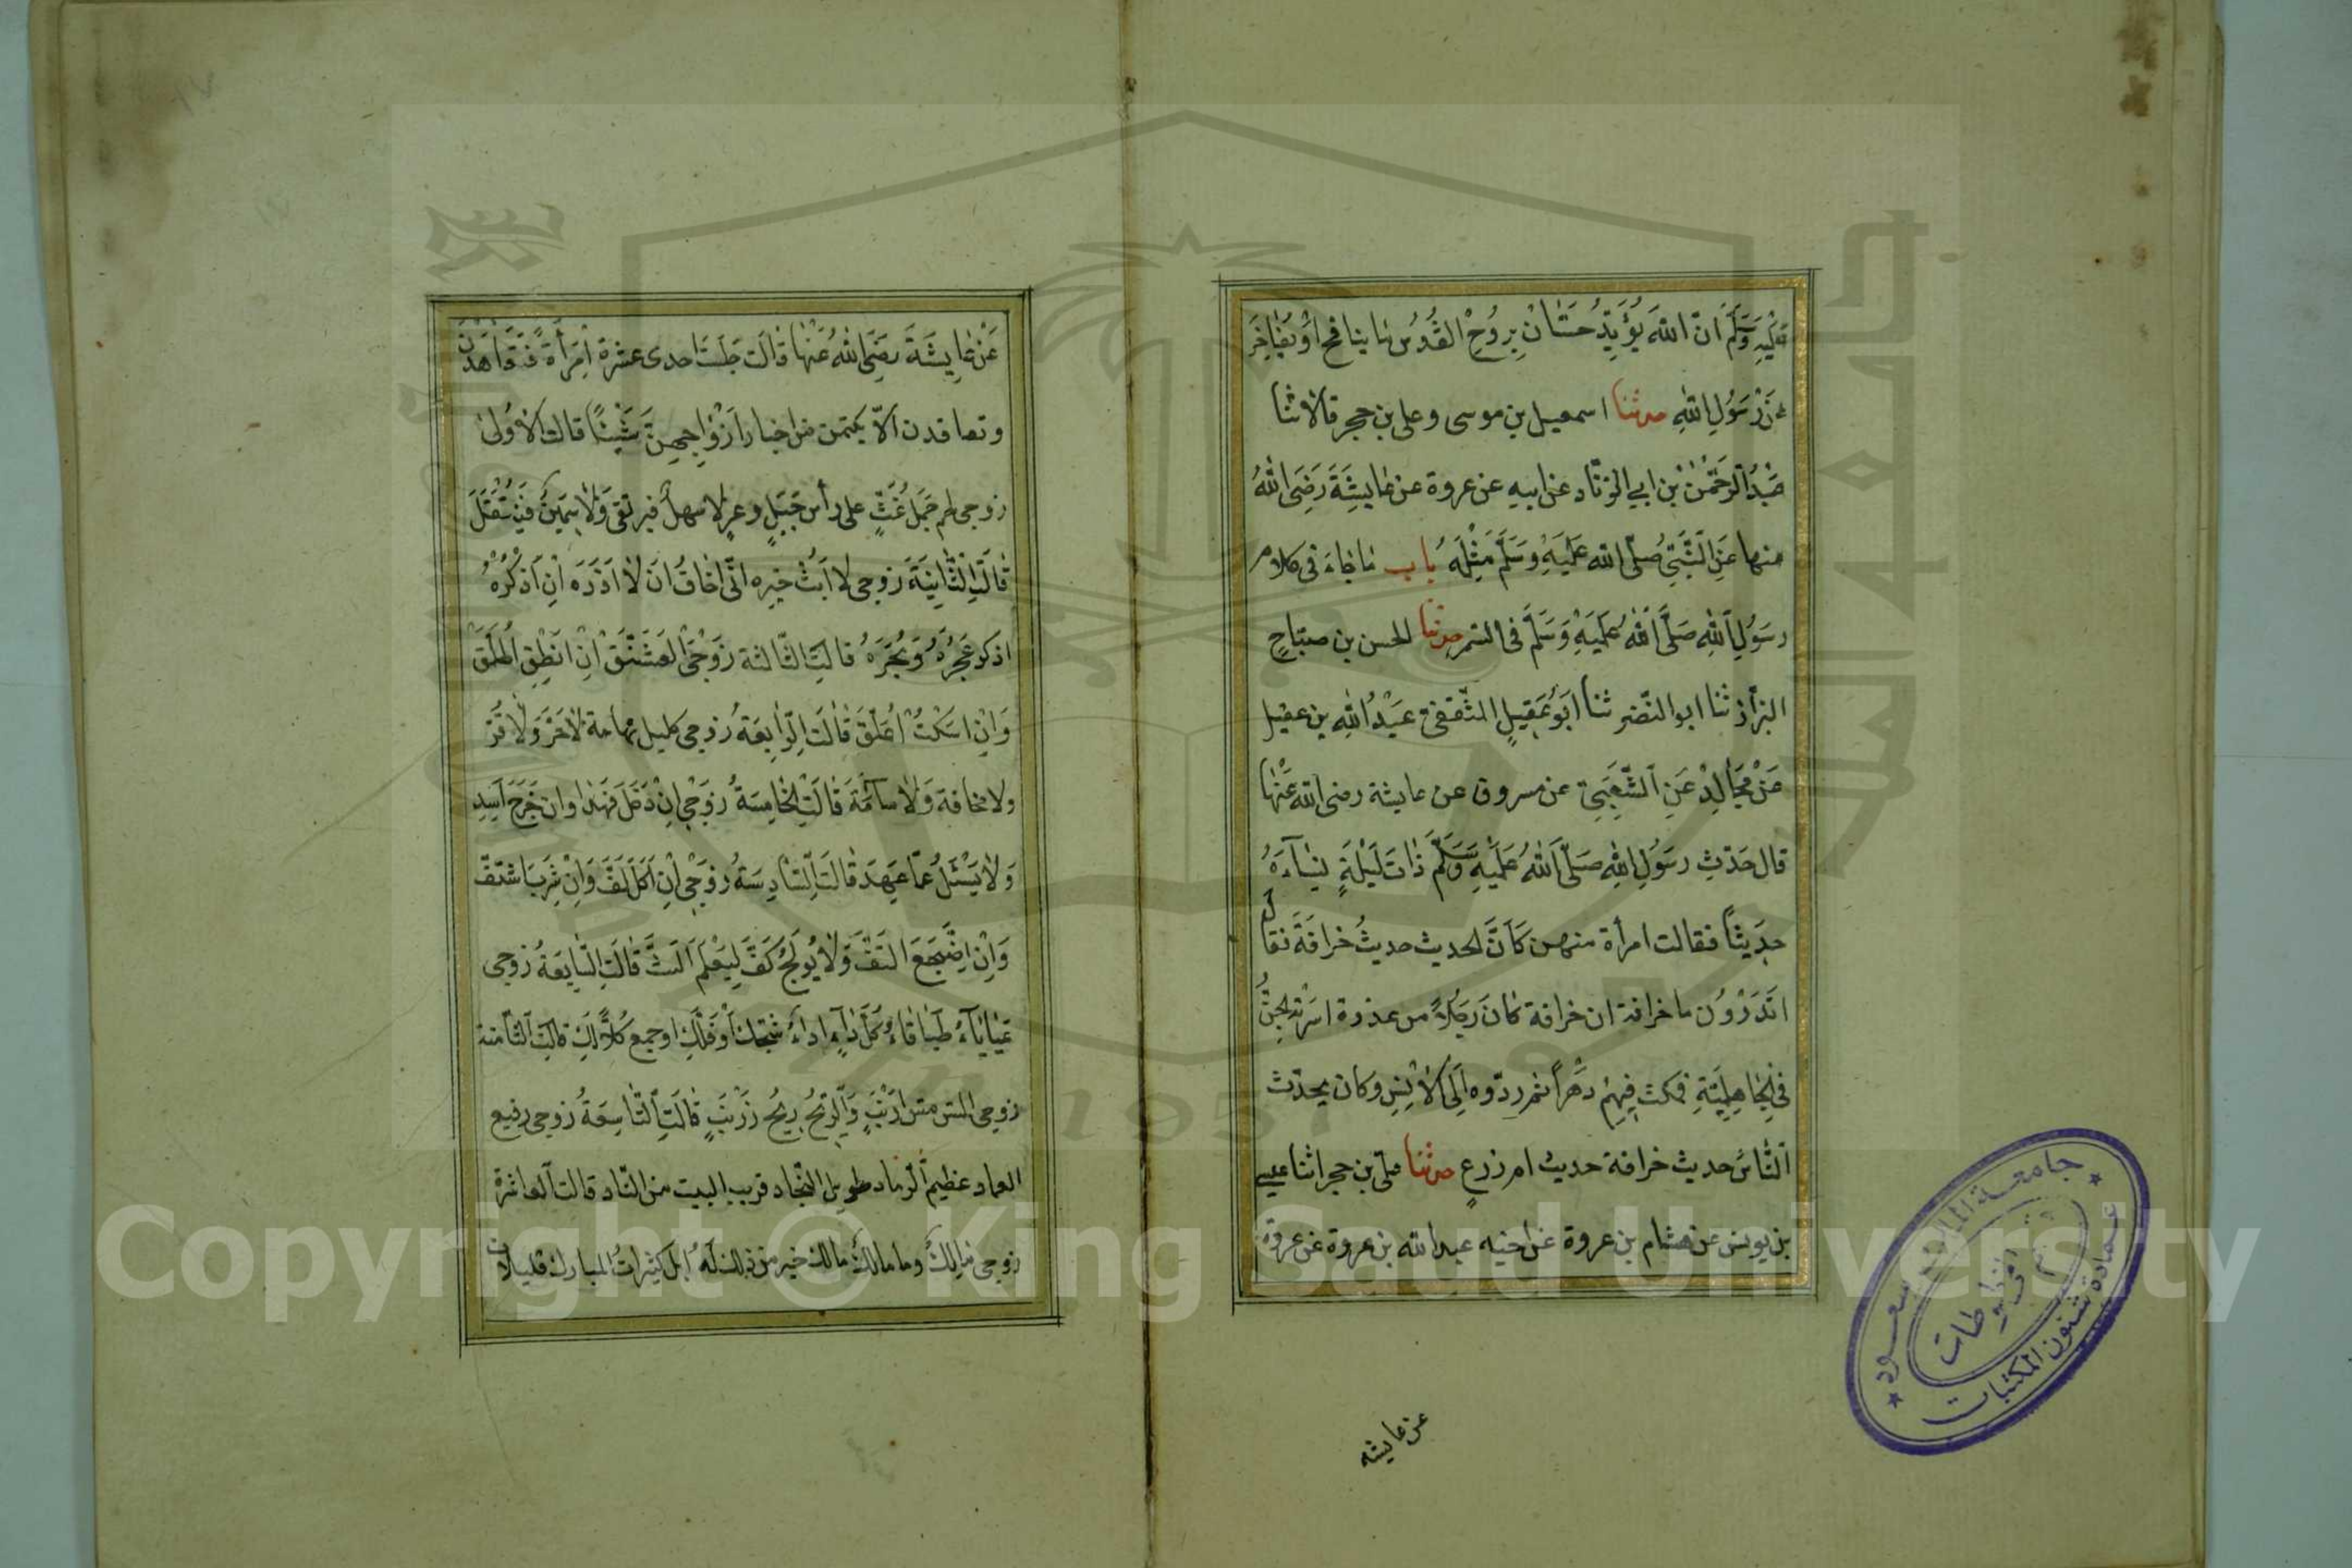 عَلَيْهِ وَسَلَّمَ انّ اللّٰهَ يُؤَيِّدُ حَسَّانْ بِرُوْحِ الْقُدُسِ مَا ينا فح اَوْ يُفَاخِرَ
عَنْ رَسُوْلِ اللّٰهِ حدثنا اسمعيل بن موسى وعلى بن حجر قالا ثنا
عَبْدُ الرَّحْمٰنْ بْن ابي الزنّاد عن ابيه عن عروة عن عايِشَةَ رَضِىَ اللّٰهُ
عنها عَنِ النَّبِّىِ صَلّى اللّٰه عَلَيْهِ وَسَلَّمَ مِثْلَهُ باب مَا جَاءَ فى كلام
رسَوُلِ اللّٰهِ صَلَّى اللّٰهُ عَلَيْهِ وَسَلَّمَ فى السّمر حدثنا الحسن بن صبّاحٍ
البزّاز ثنا ابو النّضر ثنا ابَوُ عَقِيلٍ الثّقفىّ عَبْدُ اللّٰهِ بن عقيل
عَنْ مُجَالِدْ عَنِ الشَّعْبِىّ عن مسروق عن عايشة رضى اللّٰه عَنْهَا
قال حَدّثِ رسَوُلِ اللّٰهِ صَلّى اللّٰهُ عَلَيْهِ وَسَلَّمَ ذَاتَ لَيْلَةٍ نِسَآءَهُ
حدِيثاً فقالت امرأة منهن كَاَنَّ الحديث حديثُ خرافَةَ فقال
اتَدَرْوُن ما خرافة ان خرافة كَانَ رَجُلاً من عذرة اسَرَتْه الجِنُّ
فى الجَاهِلِيَّةِ فمكث فِيهِمْ دَهْراً ثم ردّوه اِلَى الاِنْسِ وكان يحدّث
النَّاسُ حديث خرافة حديث ام زرعٍ حدثنا علىّ بن حجر انا عيسى
بن يونس عن هشام بن عروة عن اخيه عبد اللّٰه بن عروة عن عروة
عن عايشه
عَنْ عَايِشَةَ رَضِىَ اللّٰهُ عَنْهَا قالَت جَلَسَتَ احدى عشرة امْرَأَةً فَتَعَاهَدْنَ
وتعاقدن اَلاّ يكتمن من اخبار اَزْوَاجِهِنَّ شَيْئًا قالت الاُولىٰ
زوجى لحم جَمَلٍ غَثٍّ على رأس جَبَلٍ وعرٍ لا سهلٌ فيرتقى وَلَا سَمِينٌ فَيُنْتَقَلَ
قَالَتِ الثَّانِيَةَ زوجى لا اَبَثُّ خبره انّى اخافُ ان لَا اَذَرَه اِنِ اَذكُرُهْ
اذكر عُجَرَهُ وَبُجَرَهُ قالتِ الثّالثة زَوْجِىْ الْعَشَنَّقْ اِنْ انَطْقِ اُطَلَّقْ
وَاِنْ اسَكْتُ اُعَلَّقْ قَالَتِ الرّابِعَةُ زوجى كليل تهامة لا حَرَّ وَلَا قَرّ
ولا مخافة وَلَا سآمَة قَالَتِ الخَامِسَةُ زوَجْى اِنْ دَخَلَ فَهَدَ وان خَرَجَ اَسِدَ
وَلَا يَسْئَلُ عَمّا عَهِدَ قَالَتِ السّادِسَةُ زوَجْى اِنْ اَكَلَ لَفَّ وَاِنْ شرِبَ اشتَفّ
وَاِنْ اضْطَجَعَ التَفَّ وَلَا يُوْلِجُ كَفَّ لِيَعْلَمَ الَبثَّ قَالَتِ السّابِعَةُ زوجى
عَيَايَآءُ طَبَاقَاءُ كُلُّ دَآءٍ لَهُ دَاءُ شَجَّكِ اَوْ فَلَّكِ او جمع كُلاًّ لَكِ قَالَتِ الثّامنة
زوجى المسّ مسّ ارَنْبٍ وَالرِّيْحُ رِيْحُ زَرْنَبٍ قَالَتِ التَّاسِعَةُ زوجى رفيع
العماد عظيم الرّماد طويل النّجاد قريب البيت من النّاد قالت العاشرة
زوجى مَالِكٌ وما مالكٌ مالك خير من ذلك لَهُ ابلٌ كثيراتُ المبارك قليلات
Copyright © King Saud University
جامعة الملك سعود
عمادة شئون المكتبات
قسم المخطوطات
1957